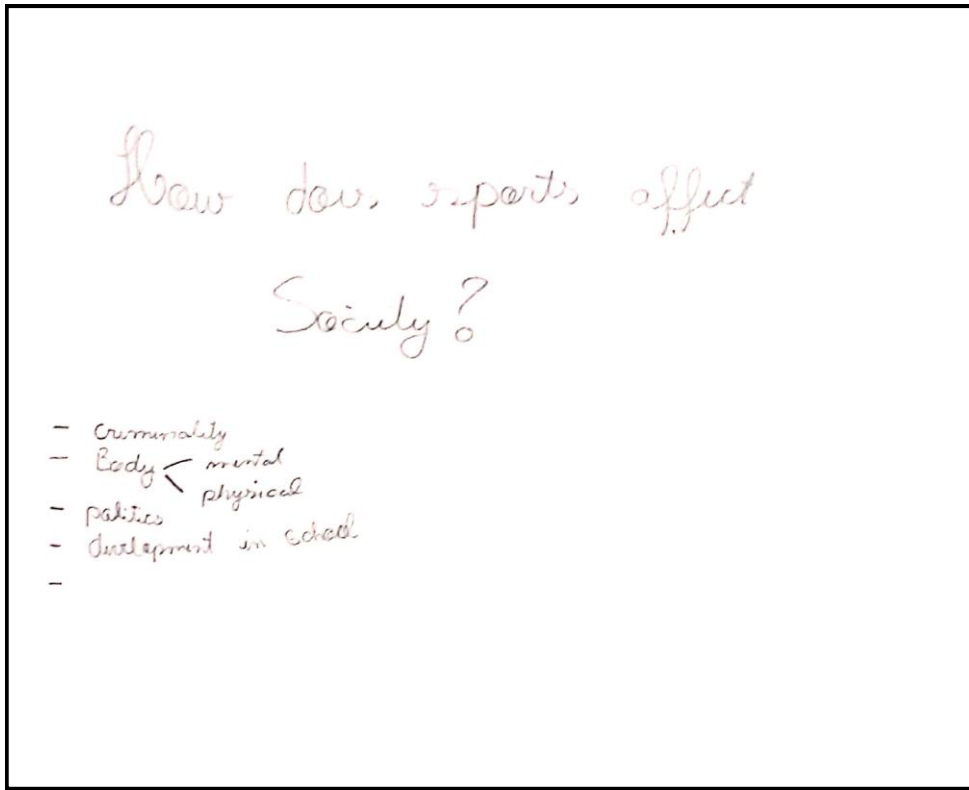 How does sports affect
Society?
- criminality
- Body < mental
physical
- politics
- development in school
-